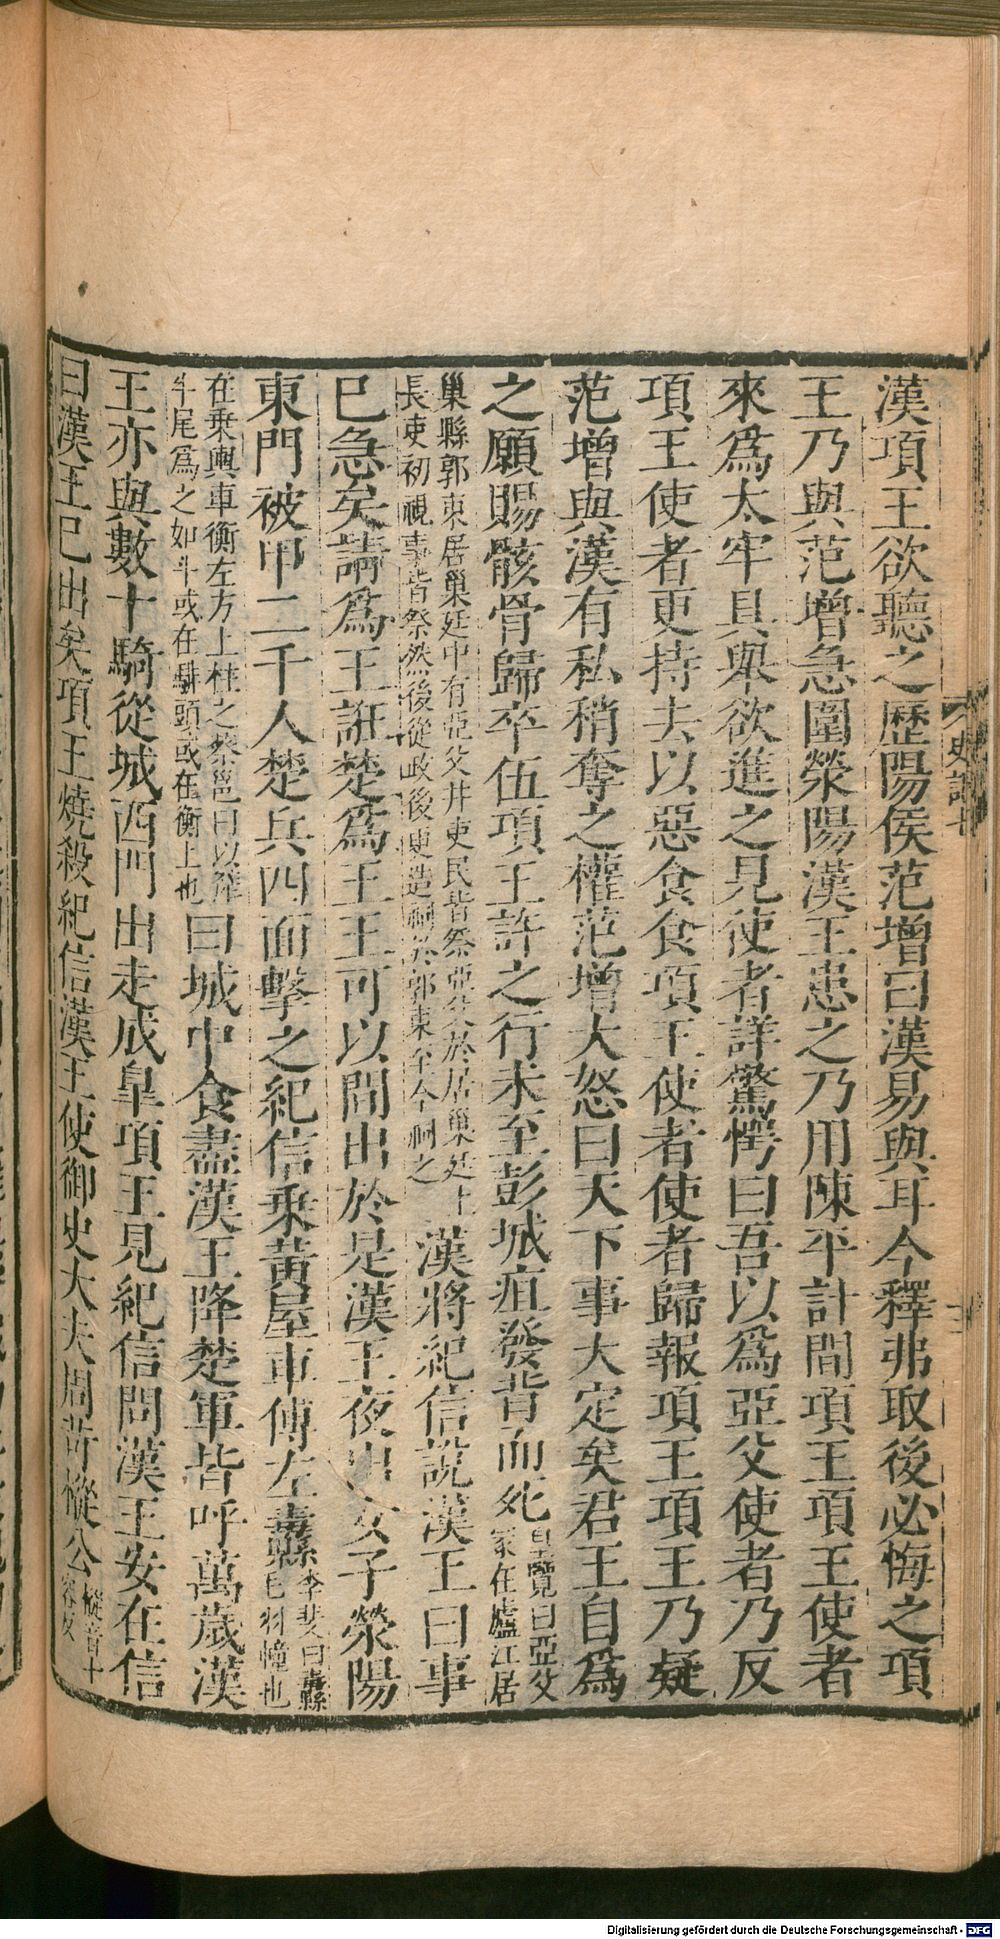 漢項王欲聽之歷陽侯范增曰漢易與耳今釋弗取後必悔之項
王乃與范增急圍滎陽漢王患之乃用陳平計間項王項王使者
來爲太牢具舉欲進之見使者詳驚愕曰吾以爲亞父使者乃反
項王使者更持去以惡食食項王使者使者歸報項王項王乃疑
范增與漢有私稍奪之權范增大怒曰天下事大定矣君王自爲
之願賜骸骨歸卒伍項王許之行未至彭城疽發背而死皇覽曰亞父冢在廬江居
巢縣郭東居巢廷中有亞父井吏民皆祭亞父於居巢廷上長吏初視事皆祭然後從政後更造祠於郭東至今祠之漢將紀信說漢王曰事
巳急矣請爲王誑楚爲王王可以間出於是漢王夜出女子滎陽
東門被甲二千人楚兵四面擊之紀信乗黃屋車傅左纛李斐曰纛毛羽幢也
在乗輿車衡左方上柱之蔡邕曰以犛牛尾爲之如斗或在騑頭或在衡上也曰城中食盡漢王降楚軍皆呼萬歲漢
王亦與數十騎從城西門出走成皐項王見紀信問漢王安在信
曰漢王巳出矣項王燒殺紀信漢王使御史大夫周苛樅公樅音七容反
史記七
Digitalisierung gefördert durch die Deutsche Forschungsgemeinschaft - DFG